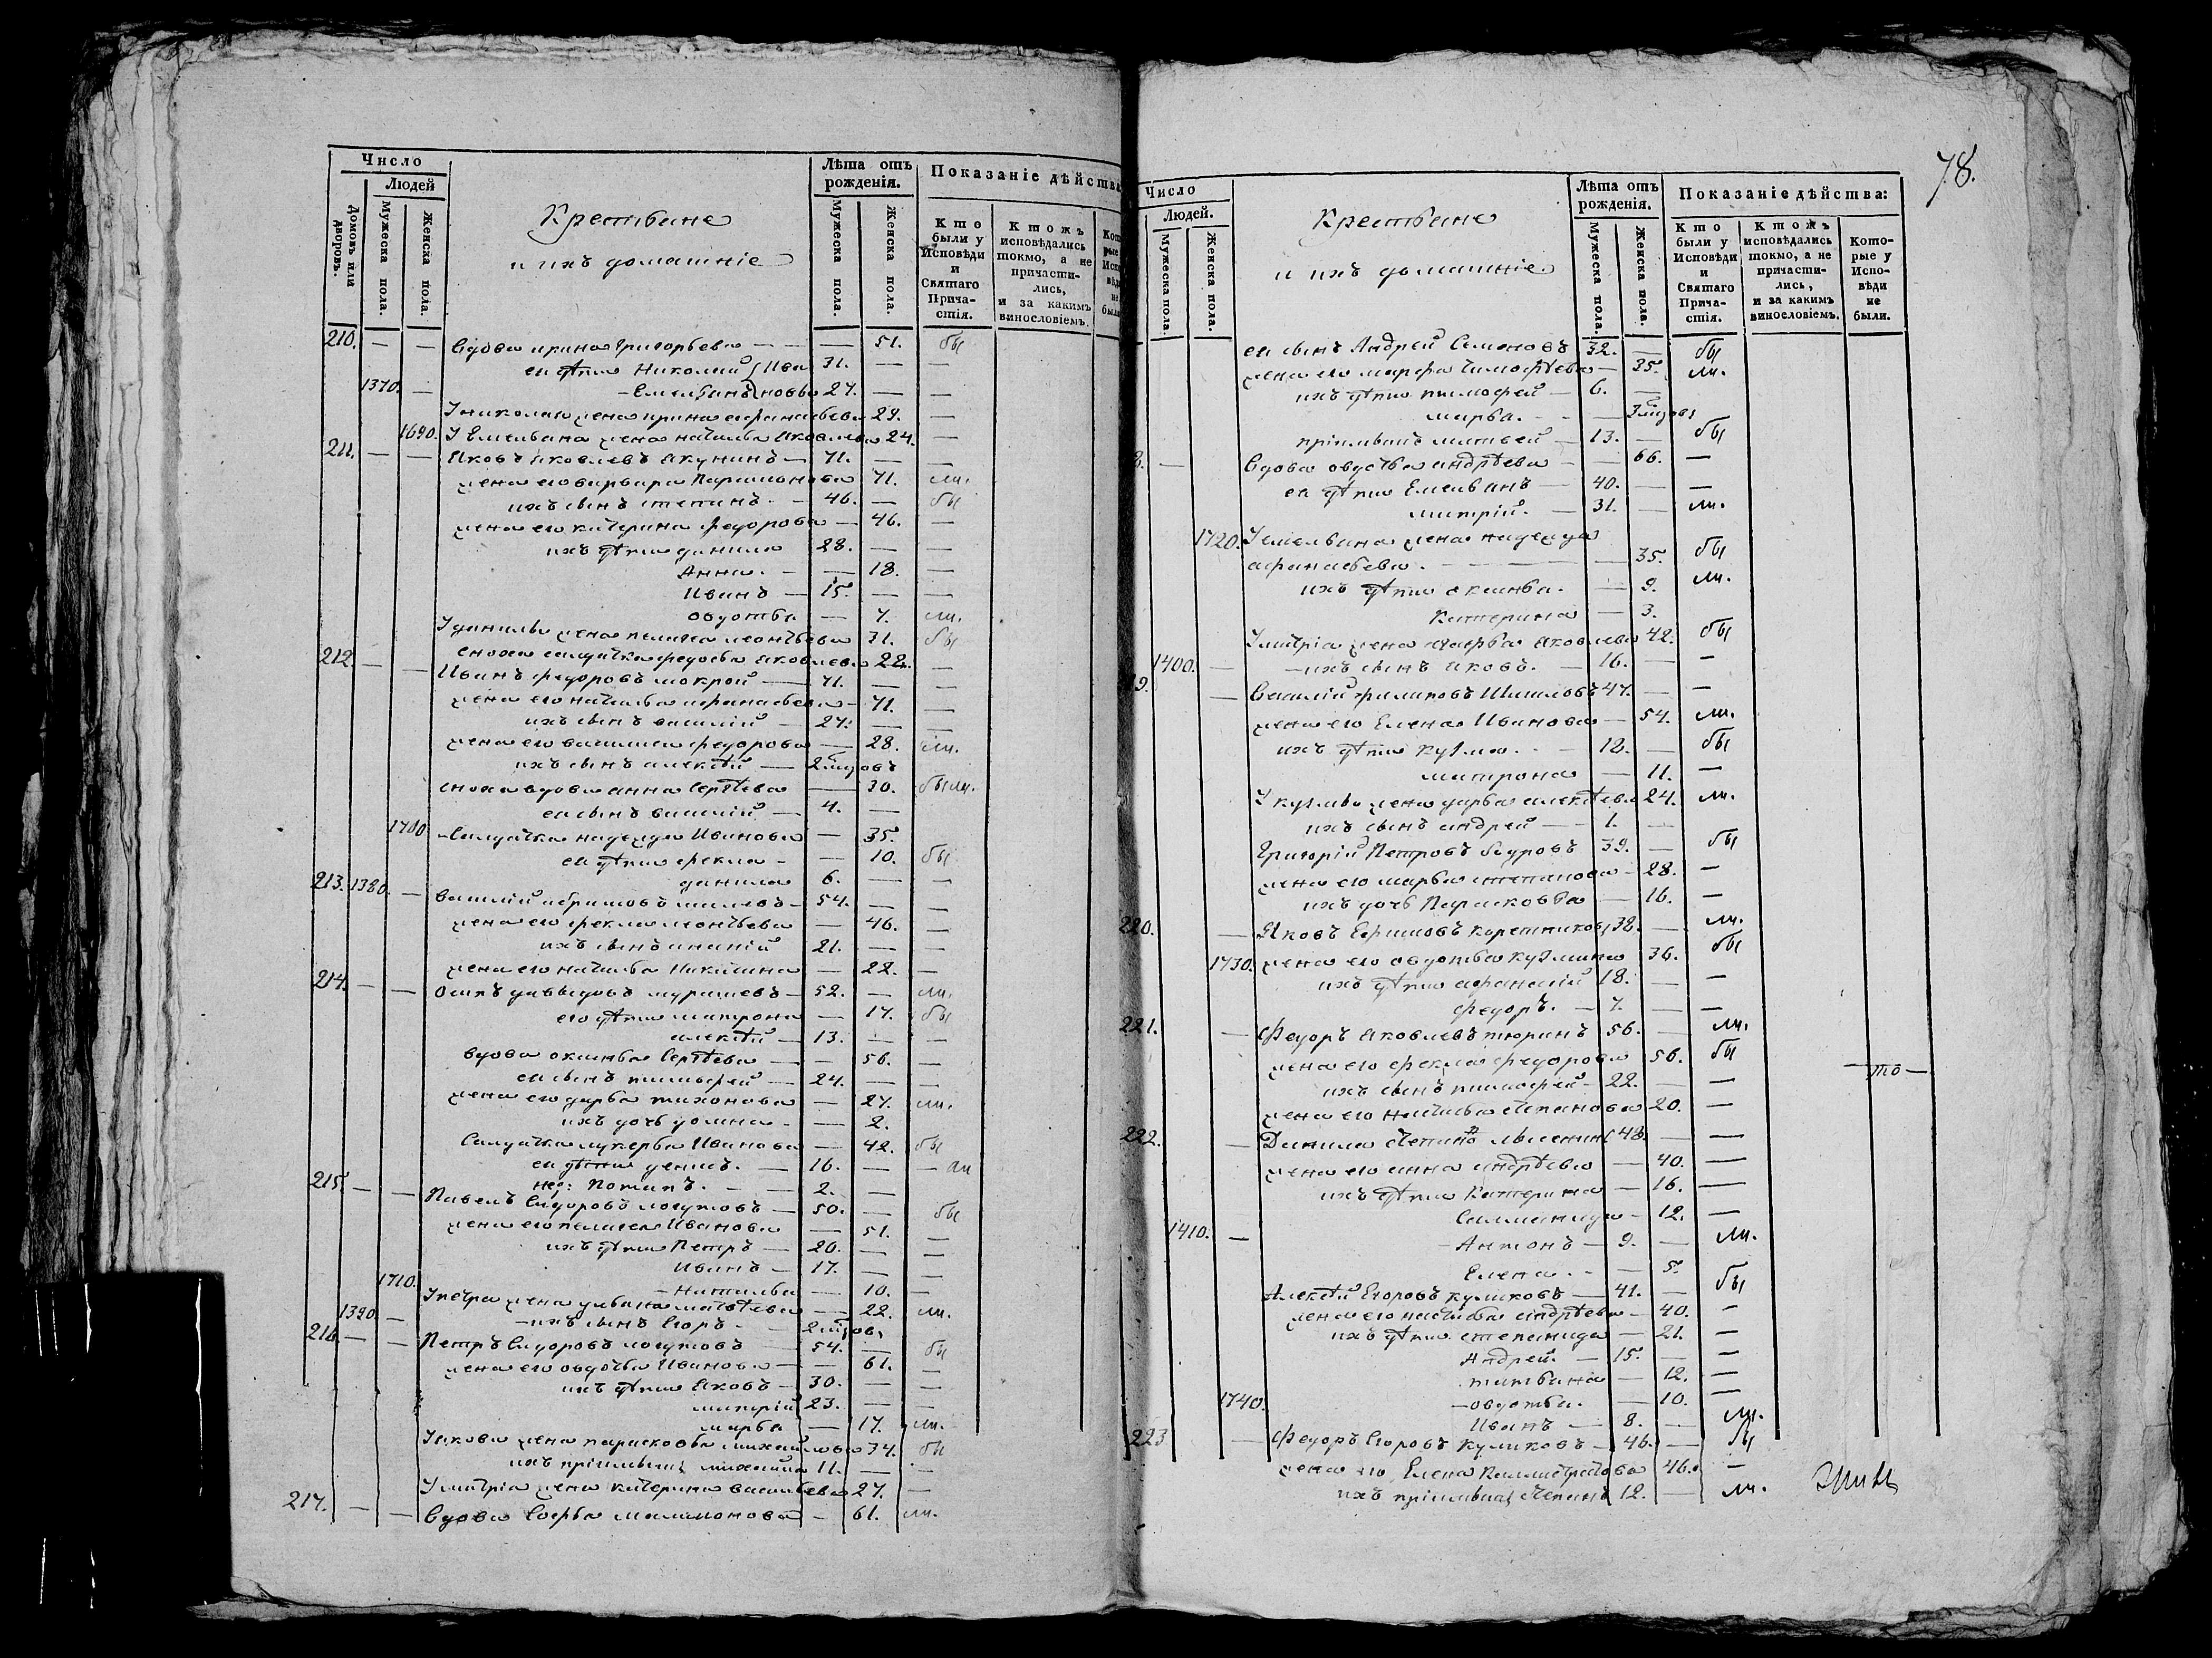 Число
Людей
Домовъ или дворовъ.
Мужеска пола.
Женска пола.
Крестьяне
и ихъ домашніе
Лѣта отъ рожденія.
Мужеска пола.
Женска пола.
Показаніе дѣйства
Кто были у Исповѣди и Святаго Причастія.
Ктожъ исповѣдались токмо, а не причастились, и за какимъ винословіемъ.
210. — — вдова ирина Григорьева — — 51. бы
ея дѣти Николай Ива 31. — —
1370. — Емельянъ новы 27. — —
У николая жена ирина афанасьева 29. —
1690. У Емельяна жена наталья яковлева 24. —
211. — — Яковъ яковлевъ акунинъ — 71. — —
жена его варвара Парамонова 71. ли.
ихъ сынъ степанъ — 46. — бы
жена его катерина федорова — 46. —
ихъ дѣти данила 28. — —
Анна. — — 18. —
Иванъ — 15. — —
овдотья — 7. ли.
У данилы жена пелагея леонтьева 31. бы
сноха салдатка федосья яковлева 22. —
212. — — Иванъ федоровъ мокрой — 71. — —
жена его наталья афанасьева — 71. —
ихъ сынъ василій — 27. — —
жена его василиса федорова — 28. ли.
ихъ сынъ алексѣй — 2 годовъ
сноха вдова анна Сергѣева — 30. были.
ея сынъ василій — 4. —
1700 — Салдатка надежда Иванова — 35.
ея дѣти фекла — — 10. бы
данила 6. — —
213. 1380. — василій абрамовъ — 54. — —
жена его фекла леонтьева — 46. —
ихъ сынъ ананій 21. — —
жена его наталья Никитина — 22. —
214. — — осипъ давыдовъ мурашевъ — 52. — ли.
его дѣти матрона — 17. бы
алексѣй — 13. — —
вдова оксинья Сергѣева — — 56. —
ея сынъ тимофей — 24. — —
жена его дарья тихонова — 27. ли.
ихъ дочь домна — — 2.
Салдатка лукерья Иванова — 42. бы
ея дѣти денисъ. — 16. — —
Потапъ. — — 2. —
215. — — Павелъ Сидоровъ логутовъ — 50. — бы
жена его пелагея Иванова — 51. —
ихъ дѣти Петръ — 20. — —
Иванъ — 17. — —
1710. — Наталья — 10. —
У петра жена ульяна матвѣева — 22. ли.
1390. — — ихъ сынъ Егоръ — 2 годовъ
216. — — Петръ Сидоровъ логутовъ — 54. — бы
жена его овдотья Иванова — — 61. —
ихъ дѣти яковъ — 30. — —
митрій 23. — —
марья — 17. ли.
У якова жена парасковья михайлова 34. бы
ихъ пріимышъ михайла 11. — —
У митрія жена катерина васильева 27. —
217. — — вдова Софья малимонова — 61. ли.
78.
Число
Людей.
Мужеска пола.
Женска пола.
Крестьяне
и ихъ домашніе
Лѣта отъ рожденія.
Мужеска пола.
Женска пола.
Показаніе дѣйства:
Кто были у Исповѣди и Святаго Причастія.
Ктожъ исповѣдались токмо, а не причастились, и за какимъ винословіемъ.
Которые у Исповѣди не были.
ея сынъ Андрей Семеновъ 32. — бы
жена его марфа тимофѣева — 35. ли.
ихъ дѣти тимофей — 6. —
марья. — — 3 годовъ
пріимышъ матвей — 13. — бы
8. — вдова овдотья андрѣева — — 66. —
ея дѣти Емельянъ — 40. — —
митрій. — 31. — ли.
1720. У емельяна жена надежда
афанасьева. — — 35. бы
ихъ дѣти оксинья. — 9. ли.
Катерина — 3.
У митрія жена яковлева 42. бы
1400. — — ихъ сынъ яковъ. — 16. — —
9. — василій филиповъ Шиш 47. — —
жена его Елена Иванова — 54. ли.
ихъ дѣти кузма — 18. — бы
матрона — 11. —
У кузмы жена дарья алексѣева 24. ли.
ихъ сынъ андрей — 1. —
Григорій Петровъ 39. — бы
жена его марья степанова — 28. —
ихъ дочь Парасковья — 16. —
220. — Яковъ Ефимовъ Каретниковъ 38. — ли.
1730. жена его овдотья кузмина 36. бы
ихъ дѣти афанасій 18. — —
федоръ. — 7. — —
221. — Федоръ яковлевъ тюринъ 56. — ли.
жена его фекла федорова 56. бы
ихъ сынъ тимофей — 22. — —
жена его наталья степанова 20. —
222. — Данила степановъ 48. — —
жена его анна андрѣева — 40. —
ихъ дѣти Катерина — 16. —
Саломанида — 12. —
1410. — — Антонъ — 9. — ли.
Елена. — — 5.
Алексѣй Егоровъ куликовъ — 41. — бы
жена его наталья андрѣева — 40. —
ихъ дѣти степанида — 21. —
Андрей. — 15. — —
татьяна — 12. —
1740. — овдотья. — 10. —
Иванъ — 8. — ли.
223 — Федоръ Егоровъ Куликовъ — 46. — бы
жена его Елена Калистратова 46. —
ихъ пріимышъ степанъ 12. — ли.
—то—